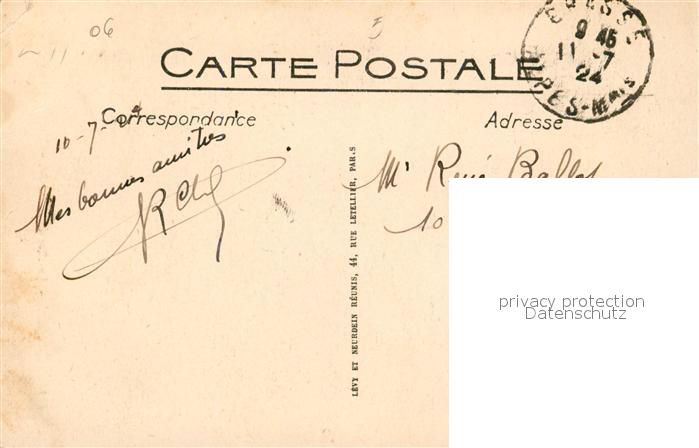 06
GRASSE
9 45
11 - 7
24
ALPES-Mmes
CARTE POSTALE
Correspondance
Adresse
10-7-24
Mes bonnes amitiés
Mr René
10
LÉVY ET NEURDEIN RÉUNIS, 44, RUE LETELLIER, PARIS
privacy protection
Datenschutz